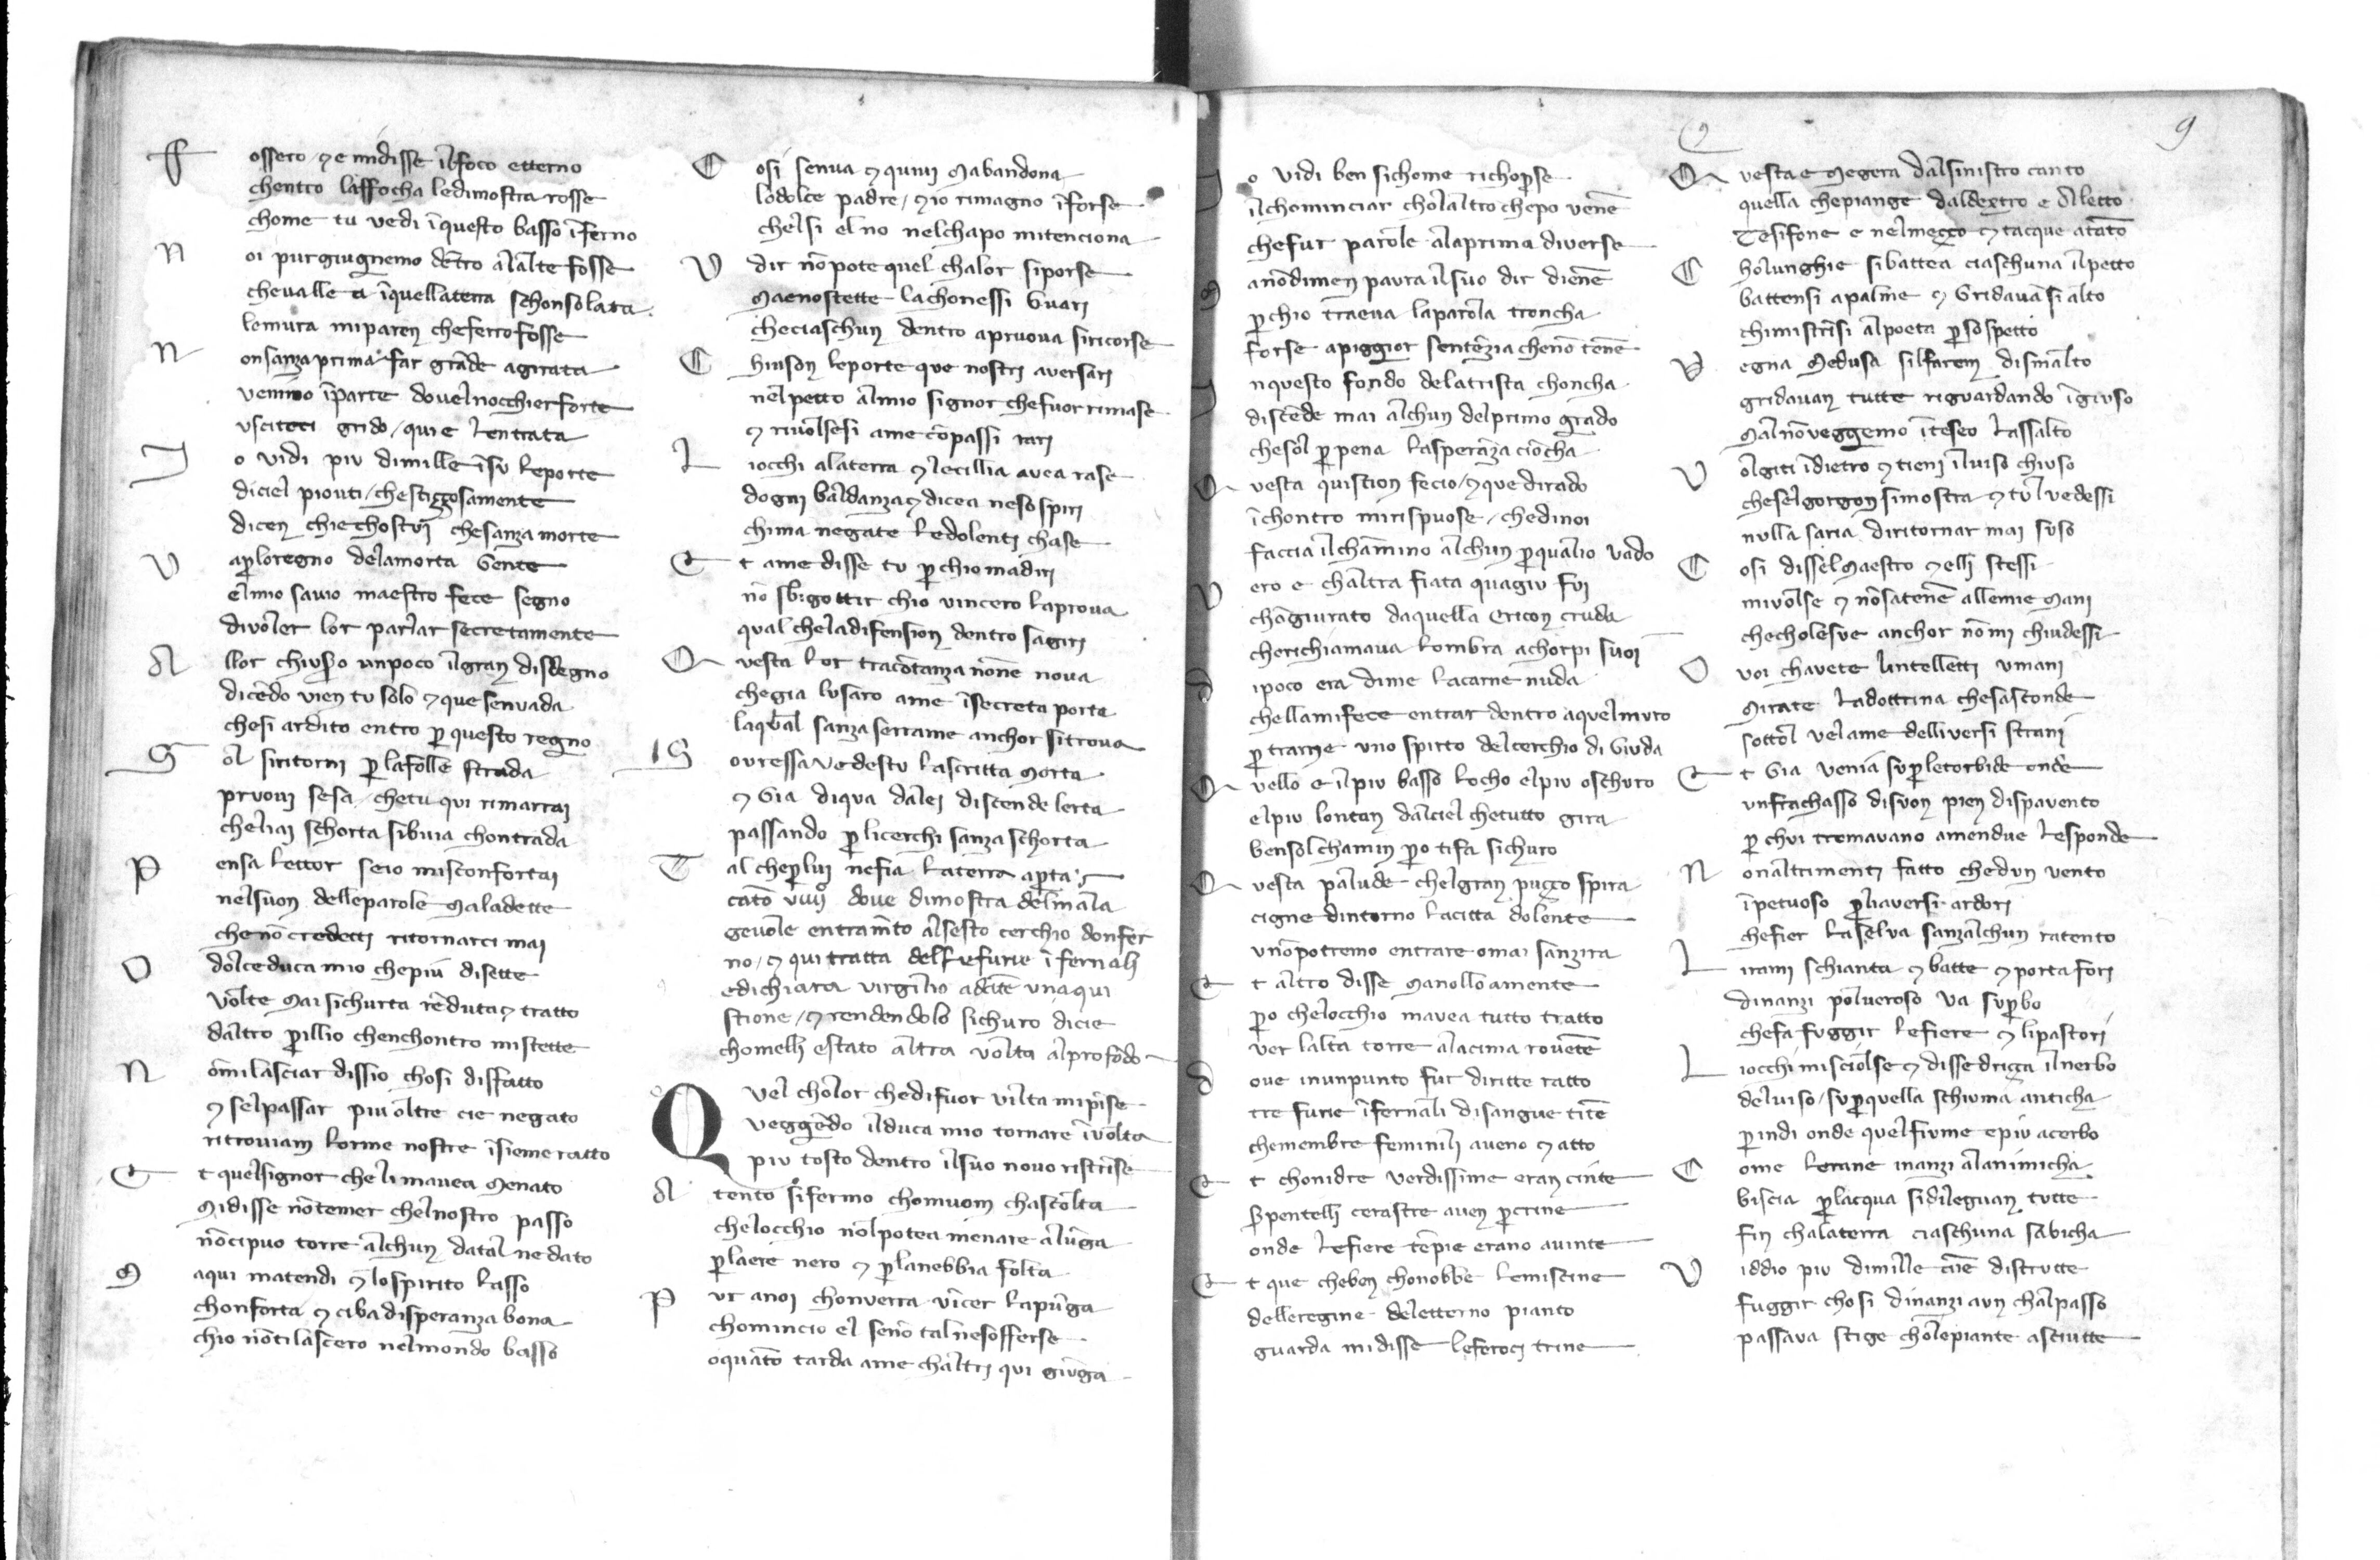 F ossero / ⁊ e midisse ilfoco etterno
chentro laffocha ledimostra rosse
chome tu vedi ī questo basso īferno
N oi purgiugnemo dētro alalte fosse
chevalle a īquellaterra schonsolata
lemura mipareŋ cheferro fosse
N onsanza prima far grāde agirata
venimo īparte dovelnocchier forte
usciteci grido / qui e lentrata
I o vidi piu dimille īsu leporte
diciel piouti / chestizzosamente
diceŋ chie chostui chesanza morte
V a ꝑloregno delamorta gente
elmio savio maestro fece segno
divoler lor parlar secretamente
A llor chiuso unpoco ilgraŋ disdegno
dicēdo vieŋ tu solo ⁊ que senvada
chosi ardito entro ꝑ questo regno
S ol siritorni ꝑ lafolle strada
pruovi sesa / chetu qui rimarrai
cheliai schorta sibuia chontrada
P ensa lettor seio misconfortai
nelsuon delleparole maladette
chenō credetti ritornarci mai
O dolce duca mio chepiu disette
volte mai sichurta rēduta ⁊ tratto
daltro ꝑillio chenchontro mistette
N ōmilasciar dissio chosi disfatto
⁊ selpassar piu oltre cie negato
ritroviam lorme nostre īsieme ratto
E t quelsignor cheli mavea menato
midisse nōtemer chelnostro passo
nōcipuo torre alchuŋ datal ne dato
M aqui matendi ⁊ lospirito lasso
chonforta ⁊ ciba disperanza bona
chio nōtilascero nelmondo basso
C osi senva ⁊ quivi mabandona
lodolce padre / ⁊ io rimagno īforse
chelsi elno nelchapo mitenciona
V dir nō pote quel chalor siporse
maenostette lachonessi guari
checiaschuŋ dentro apruova siricorse
C hiusoŋ leporte que nostri aversari
nelpetto almio signor chefuor rimase
⁊ rivolsesi ame cōpassi rari
L iocchi alaterra ⁊ lecillia avea rase
dogni baldanza ⁊ dicea nesospiri
chima negate ledolenti chase
E t ame disse tu ꝑ chio madiri
nō sbigottir chio vincero laprova
qual cheladifensioŋ dentro sagiri
Q vesta lor tracōtanza nōne nova
chegia lusaro ame īsecreta porta
laqual sanza serrame anchor sitrova
S ovressa vedestu lascritta morta
⁊ gia diqua dalei discende lerta
passando ꝑ licerchi sanza schorta
T al cheꝑlui nefia laterra aꝑta
cāto viiij dove dimostra delmala
gevole entramēto alsesto cerchio donfer
no / ⁊ qui tratta delle furie īfernali
edichiara virgilio adāte una qui
stione / ⁊ rendendolo sichuro dicie
chomelli estato altra volta alprofōdo
Q vel cholor chedifuor vilta mipīse
veggēdo ilduca mio tornare īvolta
piu tosto dentro ilsuo novo ristrīse
A tento sifermo chomuom chascolta
chelocchio nōlpotea menare alūga
ꝑlaere nero ⁊ ꝑlanebbia folta
P ur anoi chonverra vīcer lapūga
chomincio el senō talnesofferse
oquāto tarda ame chaltri qui giūga
I o vidi ben sichome richoꝑse
ilchominciar cholaltro chepo venne
chefur parole alaprima diverse
M anōdimeŋ paura ilsuo dir dienne
ꝑ chio traeva laparola troncha
forse apiggior sentēzia chenō tenne
I nquesto fondo delatrista choncha
discēde mai alchun delprimo grado
chesol ꝑ pena lasperāza cioncha
Q vesta quistioŋ fecio / ⁊ que dirado
īchontro mirispuose / chedinoi
faccia ilchammino alchuŋ ꝑqualio vado
V ero e chaltra fiata quagiu fui
chāgiurato daquella ericoŋ cruda
cherichiamava lombra achorpi suoi
D ipoco era dime lacarne nuda
chellamifece entrar dentro aquelmuro
ꝑ trarne uno spirto delcerchio di giuda
Q vello e ilpiu basso locho elpiu oschuro
elpiu lontaŋ dalciel chetutto gira
bensolchamin ꝑo tifa sichuro
Q vesta palude chelgraŋ puzzo spira
cigne dintorno lacitta dolente
unōpotremo entrare omai sanzira
E t altro disse manollo amente
ꝑo chelocchio mavea tutto tratto
ver lalta torre alacima rovēte
D ove inunpunto fur diritte ratto
tre furie īfernali disangue tīte
chemembre feminili aveno ⁊ atto
E t chonidre verdissime eraŋ cinte
serpentelli cerastre aveŋ ꝑcrine
onde lefiere tēpie erano avinte
E t que chebeŋ chonobbe lemiscine
delleregine deletterno pianto
guarda midisse leferoci trine
9
Q vesta e megera dalsinistro canto
quella chepiange daldextro e aletto
Tesifone e nelmezzo ⁊ tacque atāto
C holunghie sibattea ciaschuna ilpetto
battensi apalme ⁊ gridavāsi alto
chimistrīsi alpoeta ꝑ sospetto
V egna medusa silfareŋ dismalto
gridavaŋ tutte riguardando īgiuso
malnōveggemo īteseo lassalto
V olgiti īdietro ⁊ tieni iluiso chiuso
cheselgorgoŋ simostra ⁊ tul vedessi
nulla saria diritornar mai suso
C osi disselmaestro ⁊ elli stessi
mivolse ⁊ nōsatenne allemie mani
checholesue anchor nōmi chiudessi
O voi chavete lintelletti umani
mirate ladottrina chesasconde
sottol velame delliversi strani
E t gia venia suꝑletorbide onde
unfrachasso disuoŋ pieŋ dispavento
ꝑ chui tremavano amendue lesponde
N onaltrimenti fatto chedun vento
īpetuoso ꝑliaversi ardori
chefier laselva sanzalchun ratento
L irami schianta ⁊ batte ⁊ porta fori
dinanzi polveroso va suꝑbo
chefa fuggir lefiere ⁊ lipastori
L iocchi misciolse ⁊ disse driza ilnerbo
delviso / suꝑquella schiuma anticha
ꝑ indi onde quelfiume epiu acerbo
C ome lerane inanzi alanimicha
biscia ꝑlacqua sidileguaŋ tutte
fiŋ chalaterra ciaschuna sabicha
V iddio piu dimille anīe distrutte
fuggir chosi dinanzi auŋ chalpasso
passava stige cholepiante asciutte